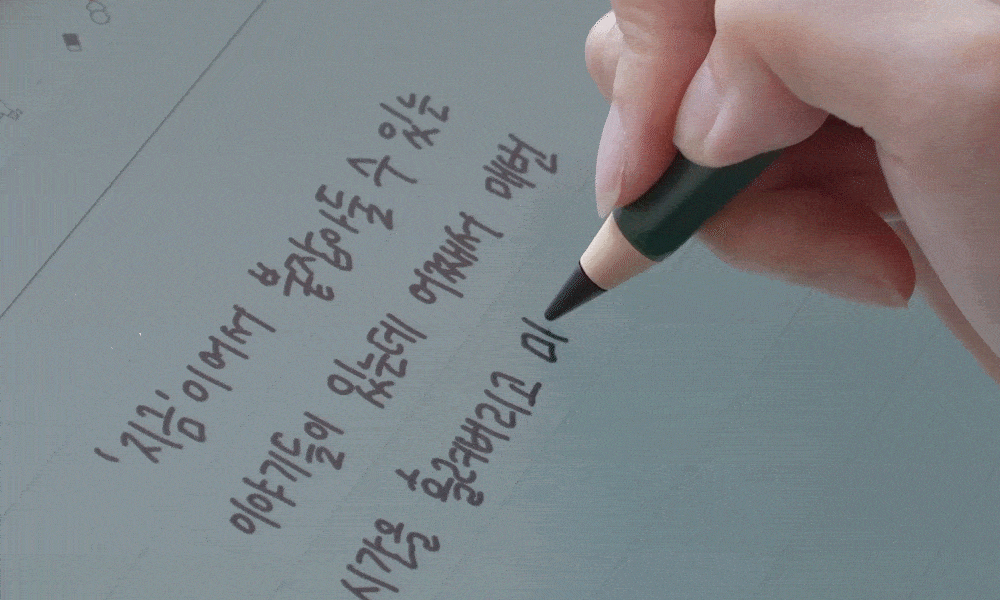 '지금'이어서 붙잡아둘 수 있는
이야기들이 있는데 어째서 매번
시간을 흘려버리고 미